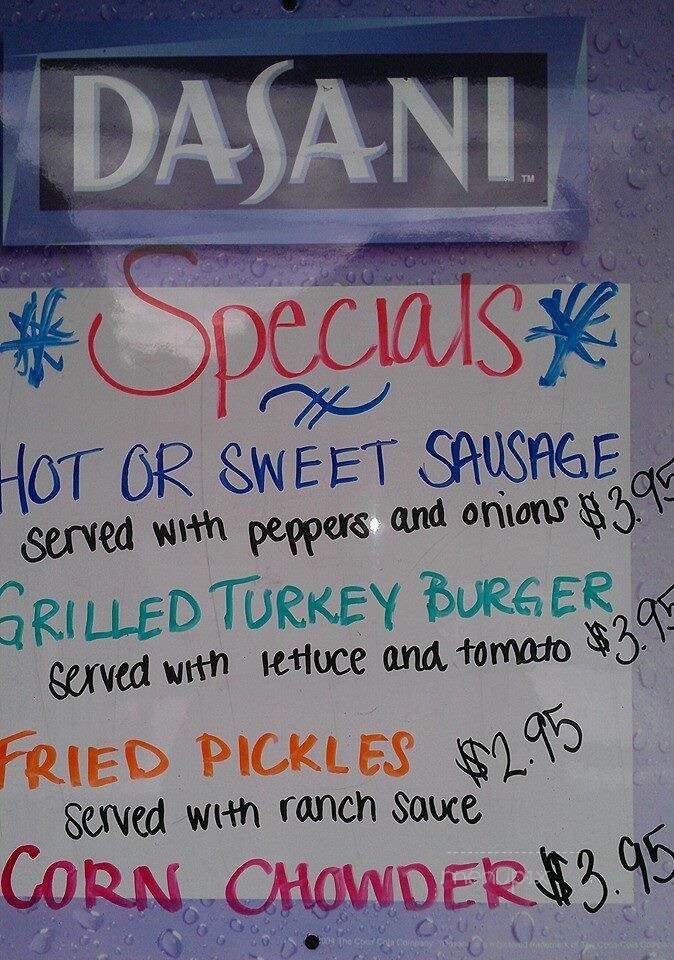 DASANI TM
Specials
HOT OR SWEET SAUSAGE
served with peppers and onions $3.95
GRILLED TURKEY BURGER
served with lettuce and tomato $3.95
FRIED PICKLES $2.95
served with ranch sauce
CORN CHOWDER $3.95
The Coca-Cola Company